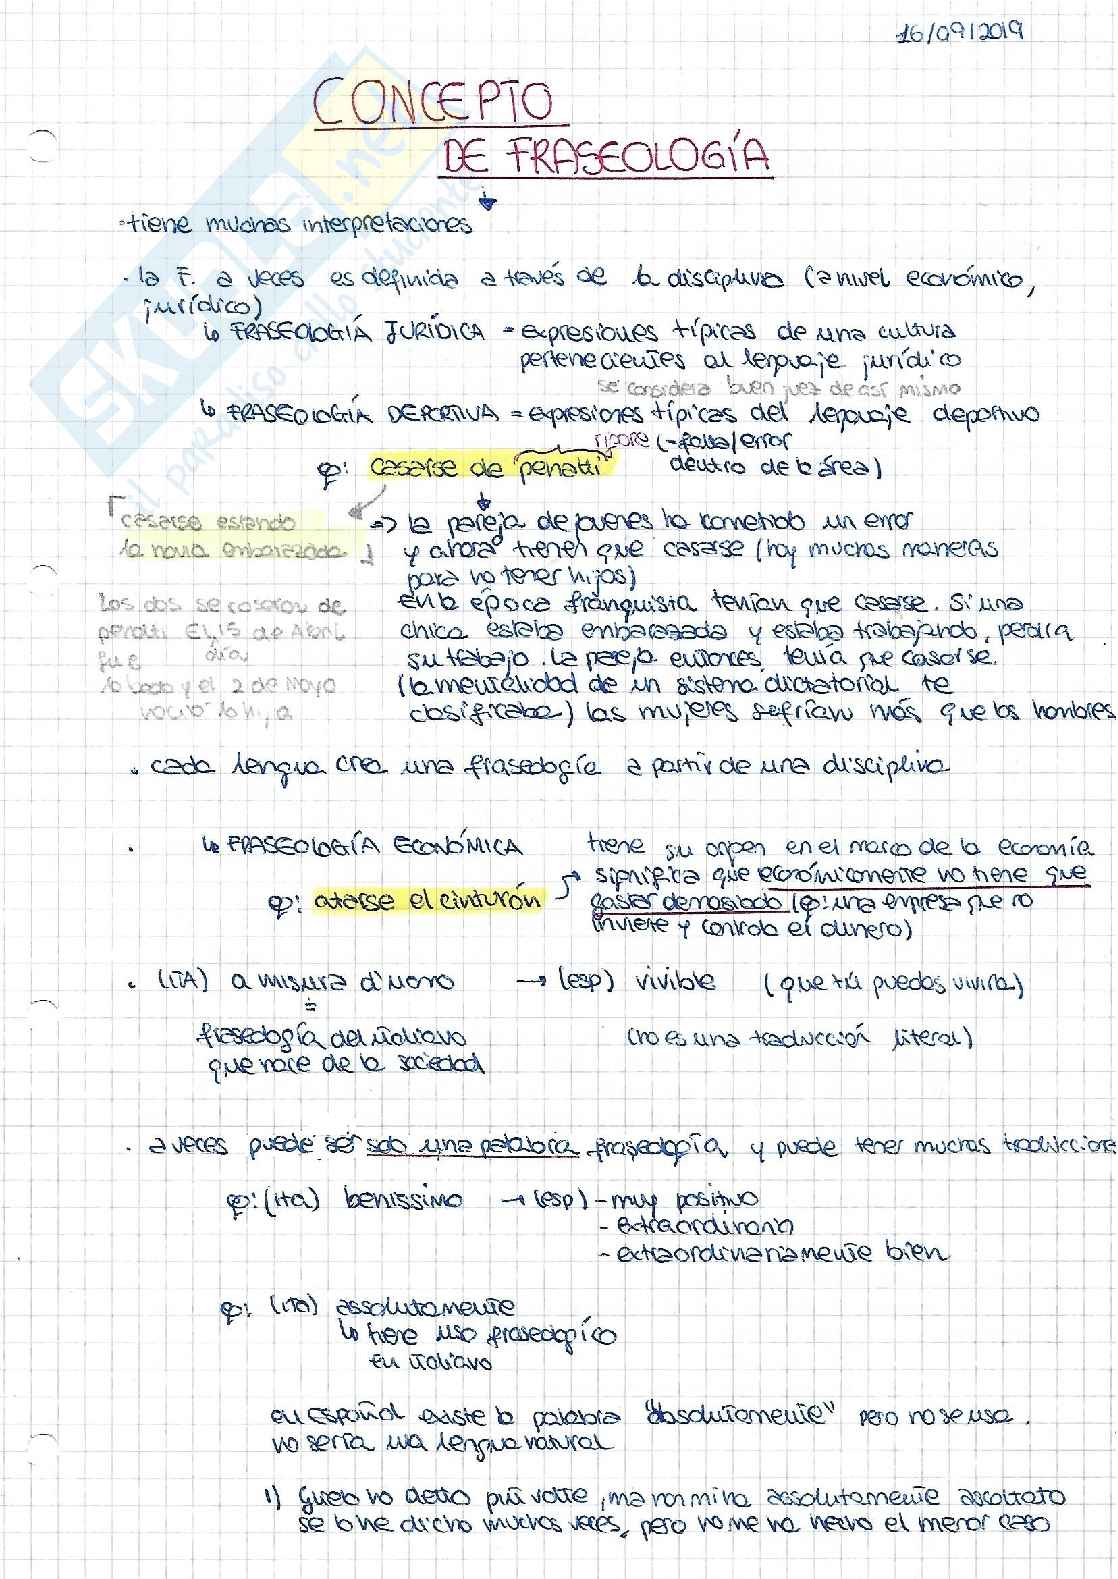 16/09/2019
CONCEPTO
DE FRASEOLOGÍA
SKUOLA.net
il paradiso dello studente
·tiene muchas interpretaciones
· la F. a veces es definida a través de la disciplina (a nivel económico,
jurídico)
↳ FRASEOLOGÍA JURÍDICA = expresiones típicas de una cultura
pertenecientes al lenguaje jurídico
se considera buen juez de así mismo
↳ FRASEOLOGÍA DEPORTIVA = expresiones típicas del lenguaje deportivo
rigore (-falta/error
ej: casarse de "penalti" dentro del área)
casarse estando => la pareja de jóvenes ha cometido un error
la novia embarazada y ahora tienen que casarse (hay muchas maneras
para no tener hijos)
Los dos se casaron de en la época franquista tenían que casarse. Si una
penalti El 15 de Abril chica estaba embarazada y estaba trabajando, perdía
fue día su trabajo. La pareja entonces tenía que casarse.
la boda y el 2 de Mayo (la mentalidad de un sistema dictatorial te
nació la hija clasificaba) las mujeres sefrían más que los hombres
· cada lengua crea una fraseología a partir de una disciplina
· ↳ FRASEOLOGÍA ECONÓMICA tiene su origen en el marco de la economía
significa que económicamente no tiene que
ej: atarse el cinturón gastar demasiado (ej: una empresa que no
invierte y controla el dinero)
· (ITA) a misura d'uomo → (esp) vivible (que tú puedas vivirla)
=
fraseología del italiano (no es una traducción literal)
que nace de la sociedad
· a veces puede ser solo una palabra fraseología, y puede tener muchas traducciones
ej: (ita) benissimo → (esp) - muy positivo
- extraordinario
- extraordinariamente bien
ej: (ITA) assolutamente
↳ tiene uso fraseológico
en italiano
en Español existe la palabra "absolutamente" pero no se usa.
no sería una lengua natural
1) Gliel'ho detto più volte, ma non mi ha assolutamente ascoltato
se lo he dicho muchas veces, pero no me ha hecho el menor caso